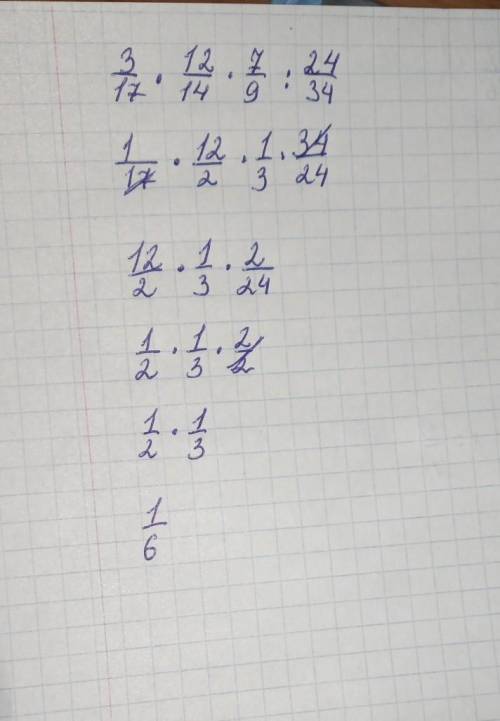 3/17 · 12/14 · 7/9 : 24/34
1/17 · 12/2 · 1/3 · 34/24
12/2 · 1/3 · 2/24
1/2 · 1/3 · 2/2
1/2 · 1/3
1/6